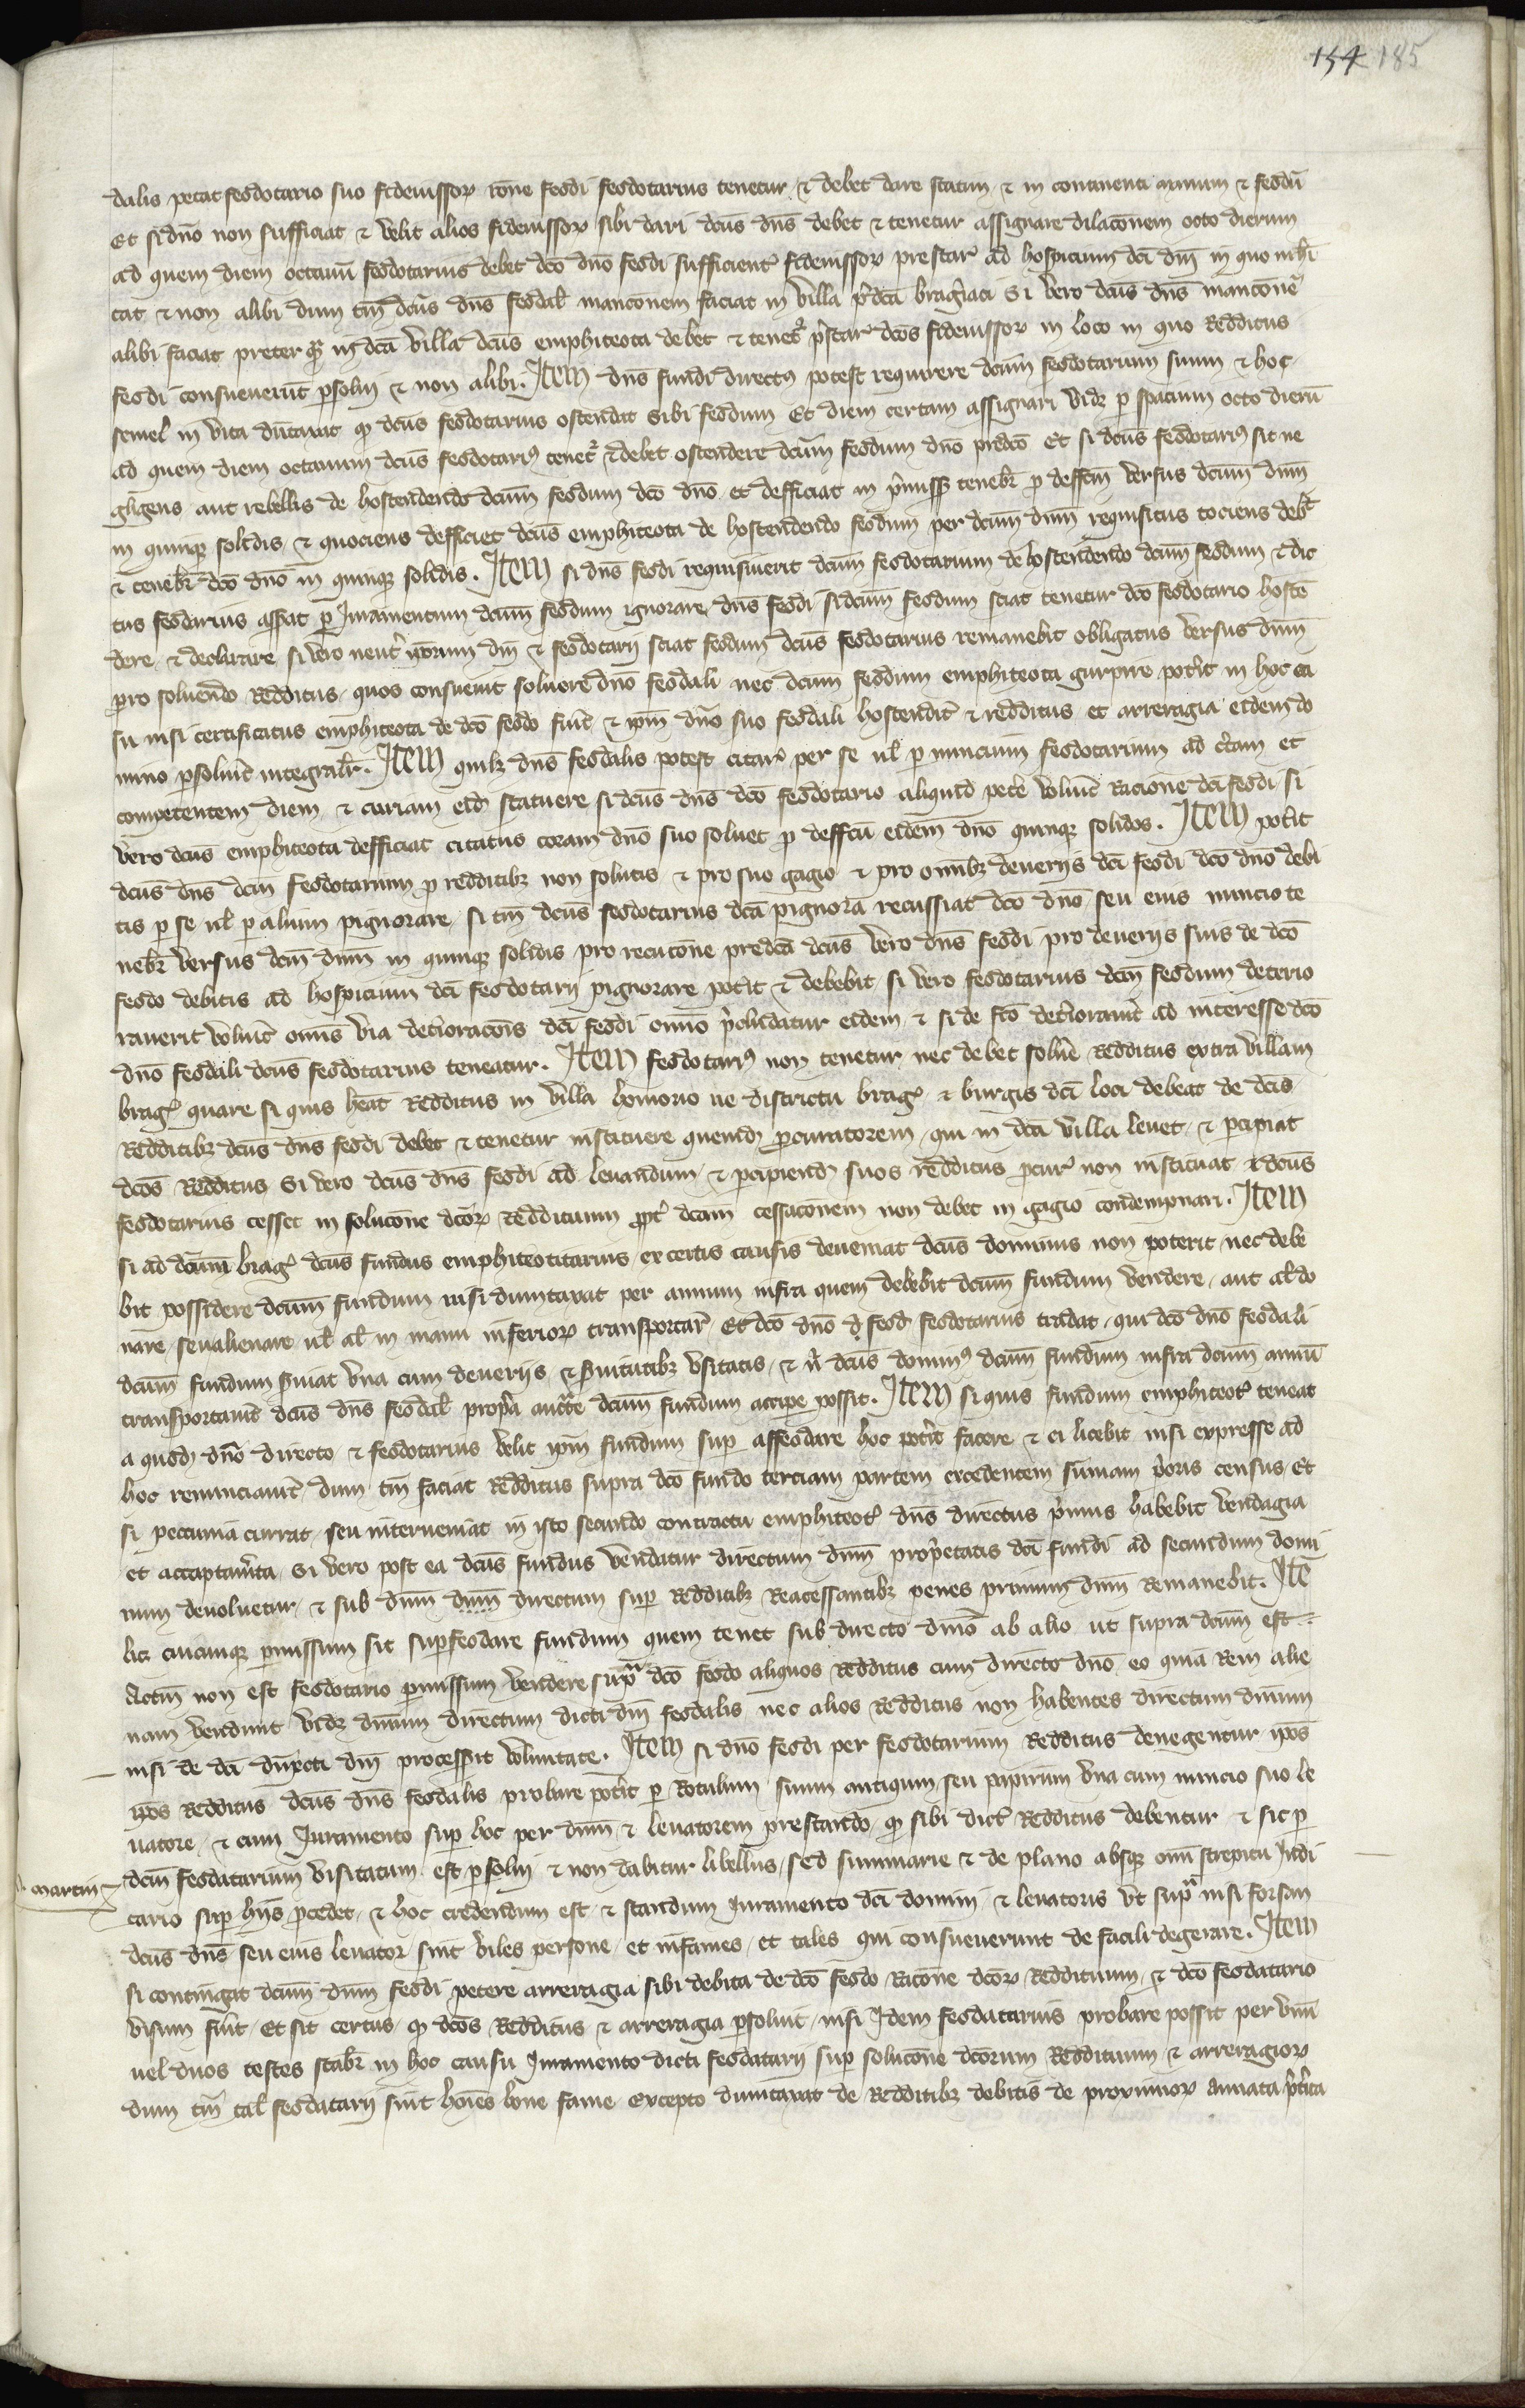 154 185
dalis petat feodotario suo fideiussor rone feodi feodotarius tenetur & debet dare statim & in continenti primum & feodū
Et si dno non sufficiat & velit alios fideiussor sibi dari dcus dns debet & tenetur assignare dilaconem octo dierum
ad quem diem octauū feodotarius debet dco dno feodi sufficient fideiussor prestar ad hospicium dci dni in quo mhi
tat & non alibi dum tm dcus dns feodal manconem faciat in villa pdca bragiaci Si vero dcus dns manconē
alibi faciat preter qz in dca villa dcus emphiteota debet & tenet pstar dcos fideiussor in loco in quo Redditus
feodi consueuerūt psolui & non alibi. Item dns fundi directus potest requirere dcum feodotarium suum & hoc
semel in vita dūtaxat qz dcus feodotarius ostendat sibi feodum Et diem certam assignari vidz p spatium octo dierū
ad quem diem octauum dcus feodotarius tenet & debet ostendere dcum feodum dno predco Et si dcus feodotarius sit ne
gligens aut rebellis de hostendendo dcum feodum dco dno et defficiat in pmiss tenebr p deffcū versus dcum dnm
in quinqz solidis & quociens defficiet dcus emphiteota de hostendendo feodum per dcum dnm requisitus tociens debt
& tenebr dco dno in quinqz solidis. Item si dns feodi requisiuerit dcum feodotarium de hostendendo dcum feodum & dic
tus feodarius asserat p Juramentum dcum feodum ignorare dns feodi si dcum feodum sciat tenetur dco feodotario hostē
dere & declarare si vero neut ipsorum dni & feodotarii sciat feodum dcus feodotarius remanebit obligatus versus dnm
pro soluendo Redditus quos consueuit soluere dno feodali nec dcum feodum emphiteota gurpire potit in hoc ca
su nisi certificatus emphiteota de dco feodo fuit & ipm dno suo feodali hostendit & redditus et arreragia eidem do
mino psoluit integralr. Item quilz dns feodalis potest citar per se ul p nuncium feodotarium ad ctam et
competentem diem & curiam eidz statuere si dcus dns dco feodotario aliquid petē voluit Racione dci feodi si
vero dcus emphiteota defficiat citatus coram dno suo soluet p deffcu eidem dno quinqz solidos. Item potit
dcus dns dcm feodotarium p redditibz non solutis & pro suo gagio & pro omnibz deuerijs dci feodi dco dno debi
tis p se ul p alium pignorare si tm dcus feodotarius dca pignora recussiat dco dno seu eius nuncio te
nebr versus dcm dnm in quinqz solidis pro recucone predca dcus vero dns feodi pro deuerijs suis de dco
feodo debitis ad hospicium dci feodotarij pignorare potit & debebit si vero feodotarius dcm feodum deterio
rauerit voluit omīs via detioraconis dci feodi omnio pcludatur eidem & si de fco detiorauit ad interesse dco
dno feodali dcus feodotarius teneatur. Item feodotarius non tenetur nec debet soluē Redditus extra villam
brag quare si quis heat Redditus in villa honorio ue districtu brag & burgis dci loci debeat de dcis
Redditibz dcus dns feodi debet & tenetur instituere quendz pcuratorem qui in dca villa leuet & pcipiat
dcos Redditus Si vero dcus dns feodi ad leuandum & pcipiendz suos redditus pcur non instituat & dcus
feodotarius cesset in solucone dcor Reddituum ppt dcam cessaconem non debet in gagio condempnari. Item
si ad dcum brag dcus fundus emphiteoticarius ex certis causis deueniat dcus dominus non poterit nec debe
bit possidere dcum fundum nisi dumtaxat per annum infra quem debebit dcum fundum vendere aut al do
nare seu alienare ul al in manu inferior transportar Et dco dno d feod feodotarius tradat qui dco dno feodali
dcum fundum suiat vna cum deuerijs & suitutibz vsitatis & n dcus dominus dcum fundum infra dcum annū
transportauit dcus dns feodal propa auctte dcum fundum accipe possit. Item si quis fundum emphiteot teneat
a quodz dno directo & feodotarius velit ipm fundum sup affeodare hoc potit facere & ei licebit nisi expresse ad
hoc renunciauit dum tm faciat Redditus supra dco fundo terciam partem excedentem sūmam pioris census Et
si peccunia currat seu interueniat in isto secundo contractu emphiteot dns directus pimus habebit vendagia
et accaptamta Si vero post ea dcus fundus vendatur directum dnm proprietatis dci fundi ad secundum domi
num deuoluetur & sub dnm dnm directum sup Redditibz Reacessantibz penes primum dnm Remanebit. Itē
licz cuicunqz pmissum sit supfeodare fundum quem tenet sub directo dmo ab alio ut supra dcum est
Actm non est feodotario pmissum vendere supra dco feodo aliquos Redditus cum directo dno eo quia Rem alie
nam vendunt vidz dnum directum dicti dni feodalis nec alios Redditus non habentes directum dnium
nisi de dci directi dni processit voluntate. Item si dno feodi per feodotarium Redditus denegentur ipos
ipos Redditus dcus dns feodalis probare potit p Rotulum suum antiquum seu papirum vna cum nuncio suo le
uatore & cum Juramento sup hoc per dnm & leuatorem prestando qz sibi dict Redditus debentur & sic p
dcm feodatarium visitatum est psolui & non dabitur libellus sed summarie & de plano absqz omi strepitu Judi
martin
ciario sup hijs pcedet & hoc credendum est & standum iuramento dci domini & leuatoris vt supa nisi forsan
dcus dns seu eius leuator sint viles persone et infames et tales qui consueuerunt de facili degerare. Item
si contingat dcum dnm feodi petere arreragia sibi debita de dco feodo Racone dcor Reddituum & dco feodatario
visum fuit Et sit certus qz dcos Redditus & arreragia psoluit nisi Idem feodatarius probare possit per vnū
uel duos testes stabr in hoc causu Juramento dicti feodatarij sup solucone dcorum Reddituum & arreragior
dum tm tal feodatarij sint hoies bone fame excepto dumtaxat de Redditibz debitis de proximior annata ptita